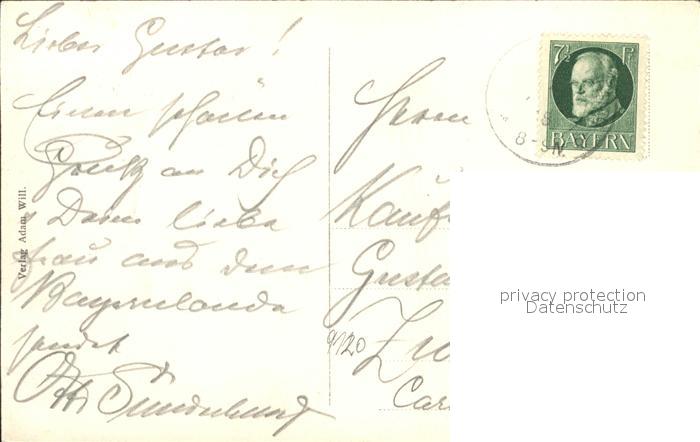 Lieber Gustav!
Einen schönen
Gruß an Dich
u Deine liebe
Frau aus dem
Bayernlande
sendet
Otto
Verlag Adam Will.
Herrn
Kauf
Gusta
Zw
Car
9120
7½ Pf
BAYERN
18
8-9N.
privacy protection
Datenschutz